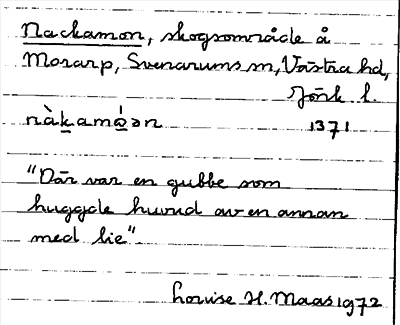 Nackamon, skogsområde å
Morarp, Svenarums sn, Västra hd,
Jönk l.
nàkamǿən 1371
"Där var en gubbe som
huggde huvud av en annan
med lie".
Lovise H. Maas 1972